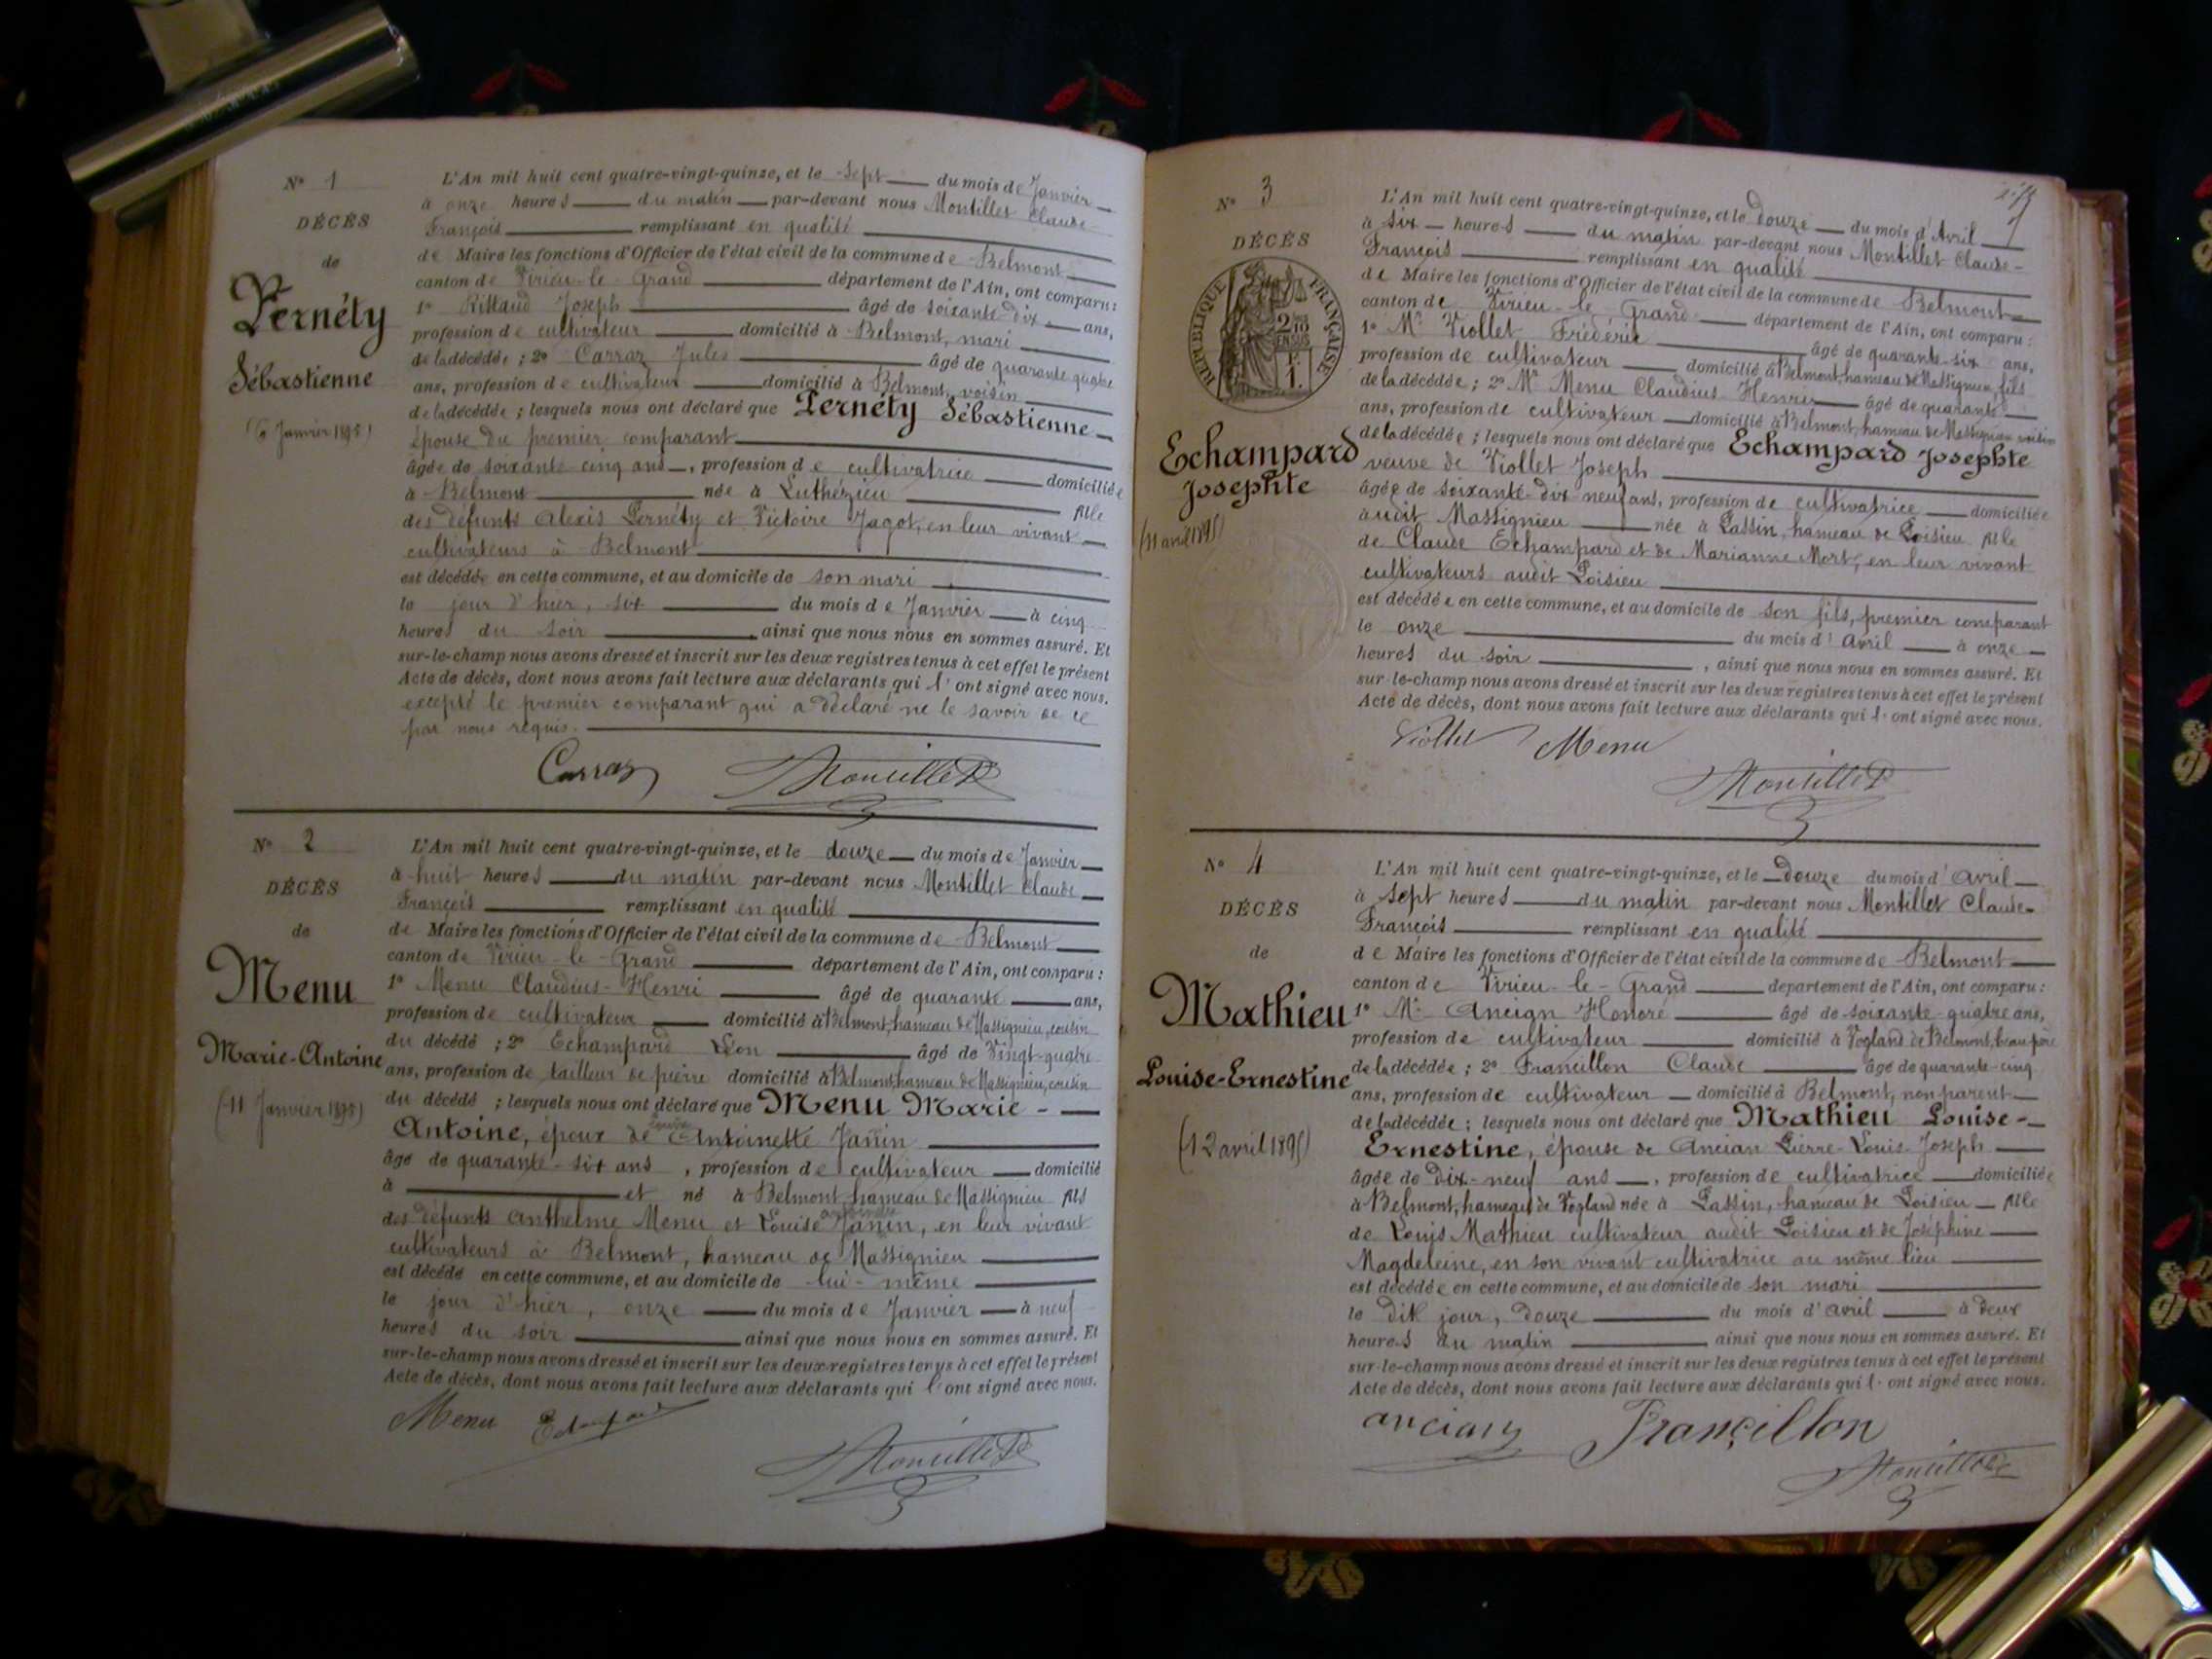 N° 1
DÉCÈS
de
Pernéty
Sébastienne
(6 Janvier 1895)
L'An mil huit cent quatre-vingt-quinze, et le Sept du mois de Janvier
à onze heures du matin par-devant nous Montillet Claude-
François remplissant en qualité
de Maire les fonctions d'Officier de l'état civil de la commune de Belmont
canton de Virieu-le-Grand département de l'Ain, ont comparu:
1° Rittaud Joseph âgé de soixante dix ans,
profession de cultivateur domicilié à Belmont, mari
de la décédée; 2° Carraz Jules âgé de quarante quatre
ans, profession de cultivateur domicilié à Belmont, voisin
de la décédée; lesquels nous ont déclaré que Pernéty Sébastienne
épouse du premier comparant
âgée de soixante cinq ans, profession de cultivatrice domiciliée
à Belmont née à Luthézieu fille
des défunts Alexis Pernéty et Victoire Jagot, en leur vivant
cultivateurs à Belmont
est décédée en cette commune, et au domicile de son mari
le jour d'hier, six du mois de Janvier à cinq
heures du soir ainsi que nous nous en sommes assuré. Et
sur-le-champ nous avons dressé et inscrit sur les deux registres tenus à cet effet le présent
Acte de décès, dont nous avons fait lecture aux déclarants qui l'ont signé avec nous.
excepté le premier comparant qui a déclaré ne le savoir de ce
par nous requis.
Carraz Montillet
N° 2
DÉCÈS
de
Menu
Marie-Antoine
(11 Janvier 1895)
L'An mil huit cent quatre-vingt-quinze, et le douze du mois de Janvier
à huit heures du matin par-devant nous Montillet Claude
François remplissant en qualité
de Maire les fonctions d'Officier de l'état civil de la commune de Belmont
canton de Virieu-le-Grand département de l'Ain, ont comparu:
1° Menu Claudius-Henri âgé de quarante ans,
profession de cultivateur domicilié à Belmont, hameau de Massignieu, cousin
du décédé; 2° Echampard Léon âgé de Vingt-quatre
ans, profession de tailleur de pierre domicilié à Belmont, hameau de Massignieu, cousin
du décédé; lesquels nous ont déclaré que Menu Marie-
Antoine, époux de Antoinette Janin
âgé de quarante-six ans, profession de cultivateur domicilié
à et né à Belmont, hameau de Massignieu fils
des défunts Anthelme Menu et Louise Janin, en leur vivant
cultivateurs à Belmont, hameau de Massignieu
est décédé en cette commune, et au domicile de lui-même
le jour d'hier, onze du mois de Janvier à neuf
heures du soir ainsi que nous nous en sommes assuré. Et
sur-le-champ nous avons dressé et inscrit sur les deux registres tenus à cet effet le présent
Acte de décès, dont nous avons fait lecture aux déclarants qui l'ont signé avec nous.
Menu Echampard
Montillet
N° 3
DÉCÈS
RÉPUBLIQUE FRANÇAISE
2/10 EN SUS
F.
1.
Echampard
Josephte
(11 avril 1895)
L'An mil huit cent quatre-vingt-quinze, et le douze du mois d'Avril
à six heures du matin par-devant nous Montillet Claude-
François remplissant en qualité
de Maire les fonctions d'Officier de l'état civil de la commune de Belmont
canton de Virieu-le-Grand département de l'Ain, ont comparu:
1° Mr Viollet Frédéric âgé de quarante-six ans,
profession de cultivateur domicilié à Belmont, hameau de Massignieu, fils
de la décédée; 2° Mr Menu Claudius Henri âgé de quarante
ans, profession de cultivateur domicilié à Belmont, hameau de Massignieu voisin
de la décédée; lesquels nous ont déclaré que Echampard Josephte
veuve de Viollet Joseph
âgée de soixante-dix neuf ans, profession de cultivatrice domiciliée
audit Massignieu née à Passin, hameau de Poisieu fille
de Claude Echampard et de Marianne Mort, en leur vivant
cultivateurs audit Poisieu
est décédée en cette commune, et au domicile de son fils, premier comparant
le onze du mois d'Avril à onze
heures du soir, ainsi que nous nous en sommes assuré. Et
sur-le-champ nous avons dressé et inscrit sur les deux registres tenus à cet effet le présent
Acte de décès, dont nous avons fait lecture aux déclarants qui l'ont signé avec nous.
Viollet Menu
Montillet
N° 4
DÉCÈS
de
Mathieu
Louise-Ernestine
(12 avril 1895)
L'An mil huit cent quatre-vingt-quinze, et le douze du mois d'avril
à sept heures du matin par-devant nous Montillet Claude-
François remplissant en qualité
de Maire les fonctions d'Officier de l'état civil de la commune de Belmont
canton de Virieu-le-Grand département de l'Ain, ont comparu:
1° Mr Ancian Honoré âgé de soixante-quatre ans,
profession de cultivateur domicilié à Vogland de Belmont, beau père
de la décédée; 2° Francillon Claude âgé de quarante-cinq
ans, profession de cultivateur domicilié à Belmont, non parent
de la décédée; lesquels nous ont déclaré que Mathieu Louise-
Ernestine, épouse de Ancian Pierre-Louis-Joseph
âgée de dix-neuf ans, profession de cultivatrice domiciliée
à Belmont, hameau de Vogland née à Passin, hameau de Poisieu fille
de Louis Mathieu cultivateur audit Poisieu et de Joséphine
Magdeleine, en son vivant cultivatrice au même lieu
est décédée en cette commune, et au domicile de son mari
le dit jour, douze du mois d'avril à deux
heures du matin ainsi que nous nous en sommes assuré. Et
sur-le-champ nous avons dressé et inscrit sur les deux registres tenus à cet effet le présent
Acte de décès, dont nous avons fait lecture aux déclarants qui l'ont signé avec nous.
ancian Françillon
Montillet